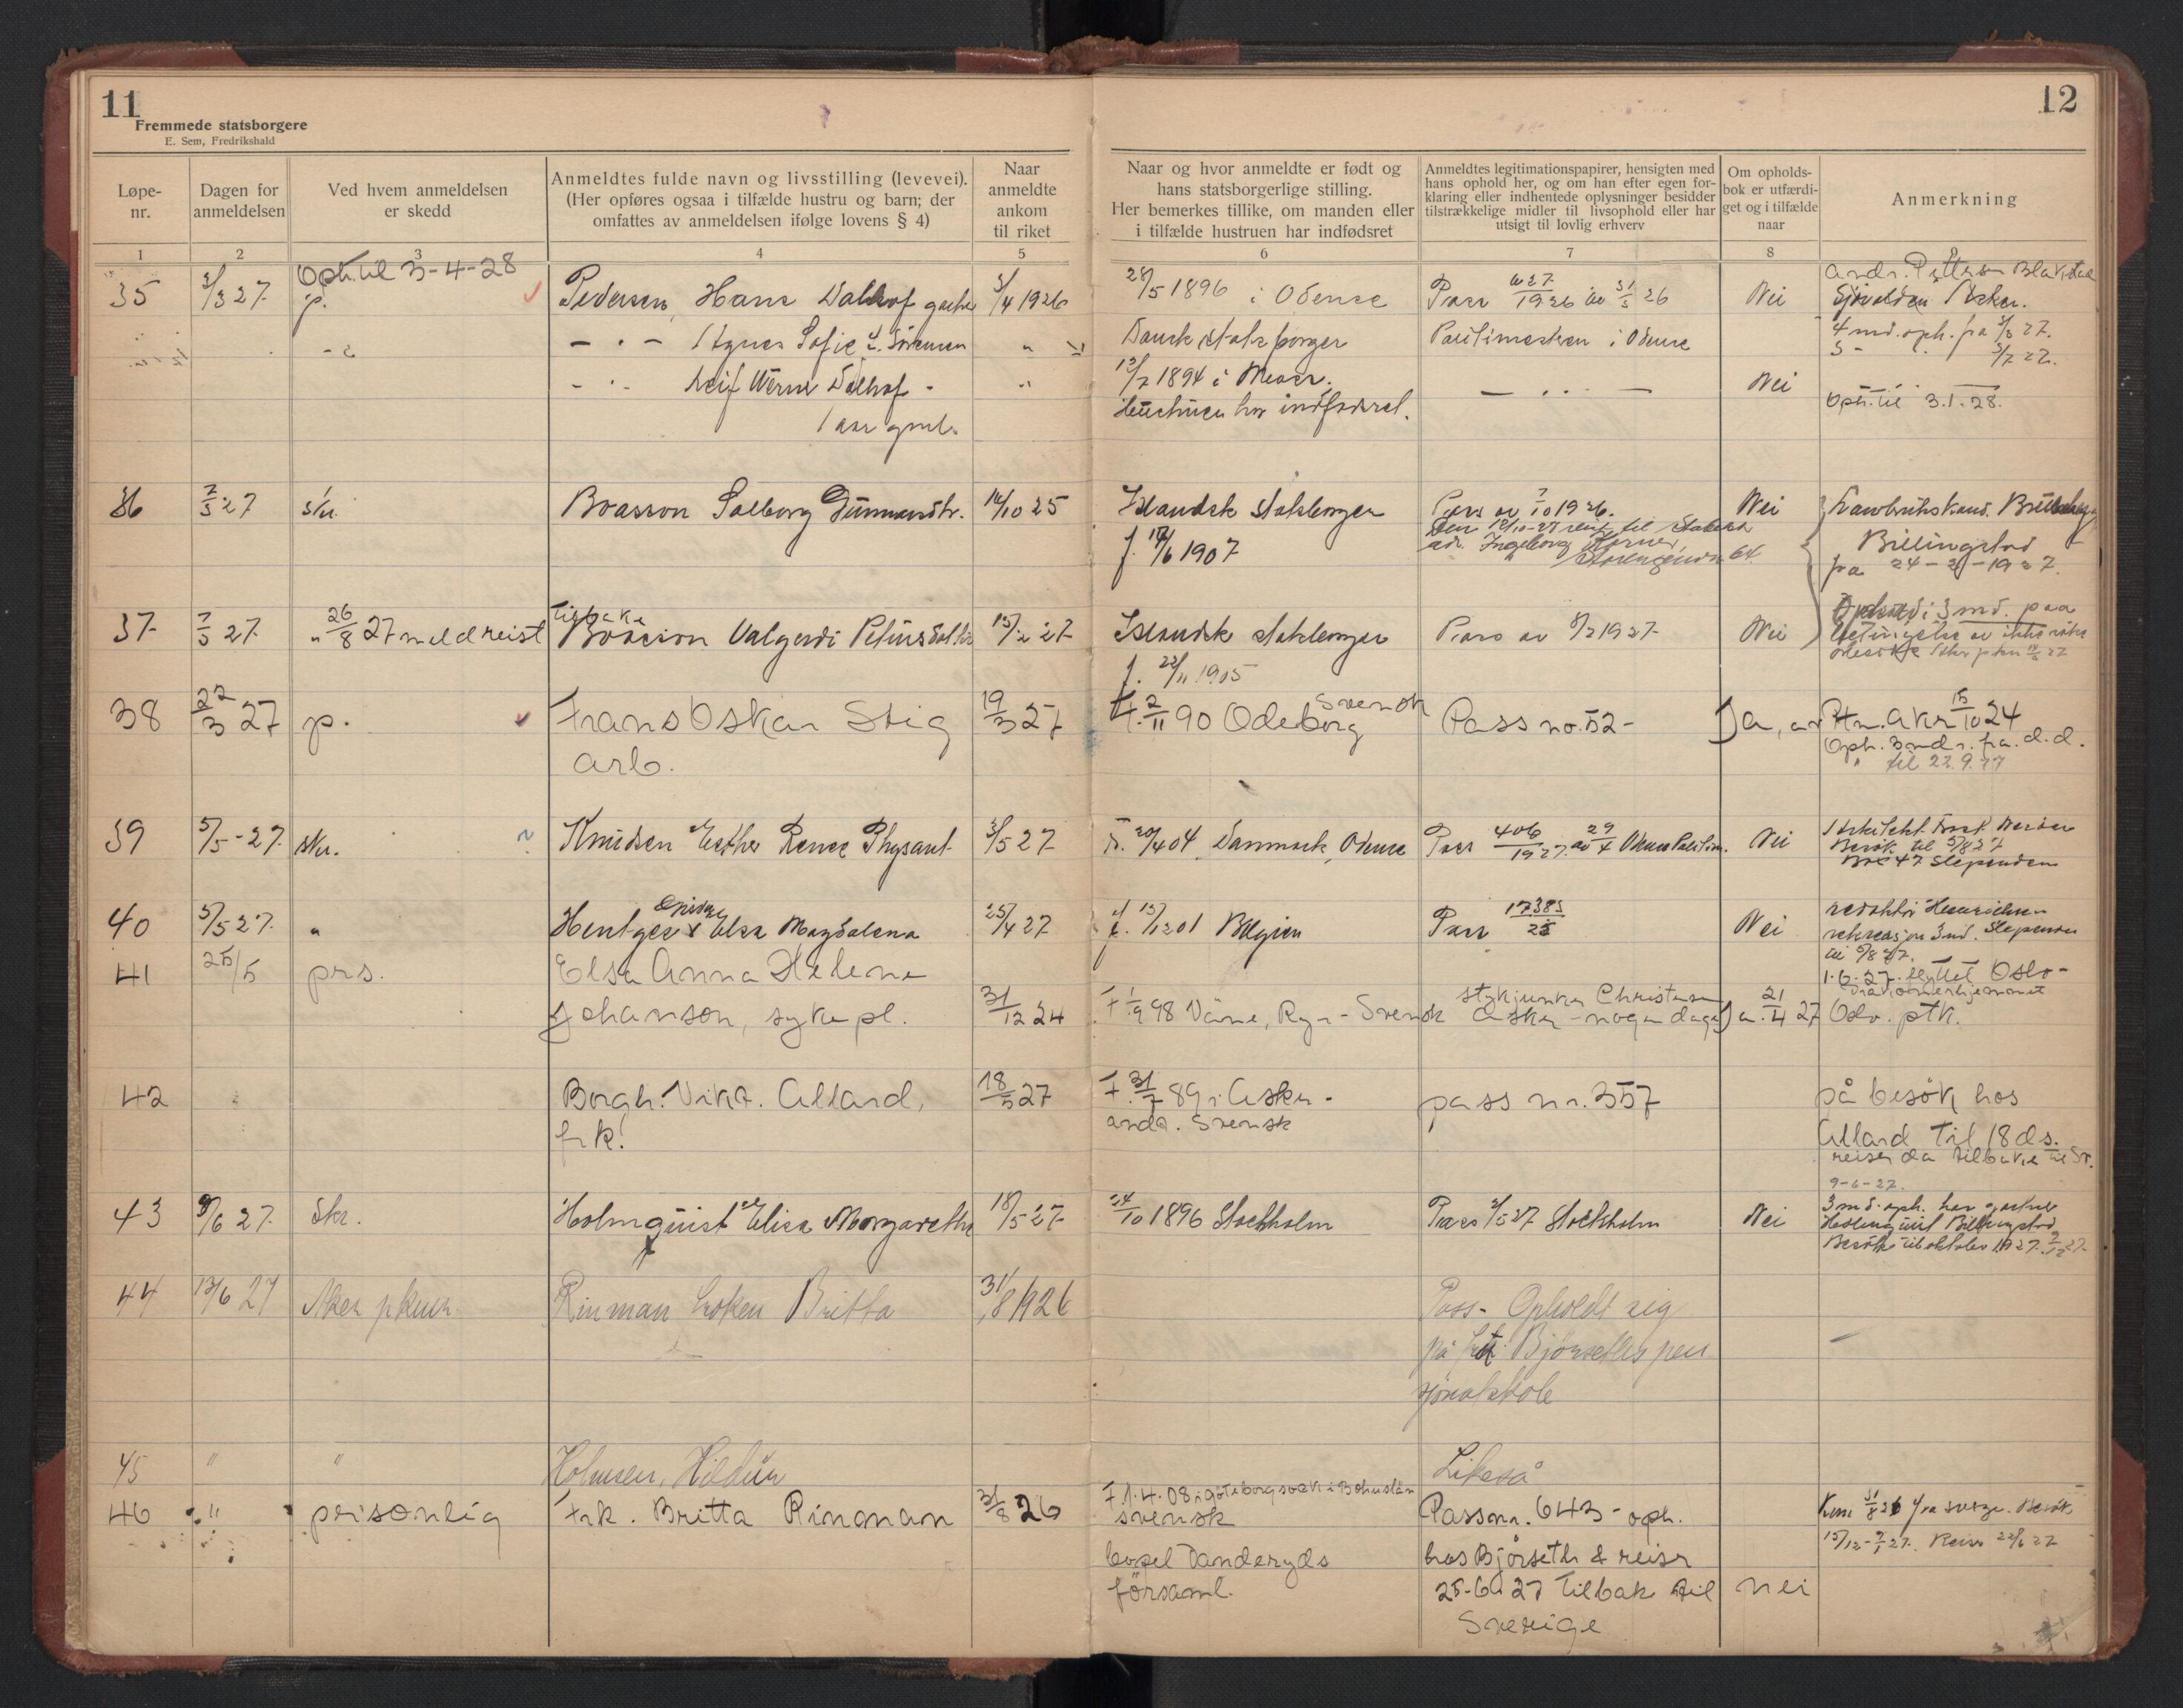 11
Fremmede statsborgere
E. Sem, Fredrikshald
12
Løpe-
nr.
Dagen for
anmeldelsen
Ved hvem anmeldelsen
er skedd
Anmeldtes fulde navn og livsstilling (levevei).
(Her opføres ogsaa i tilfælde hustru og barn; der
omfattes av anmeldelsen ifølge lovens § 4)
Naar
anmeldte
ankom
til riket
Naar og hvor anmeldte er født og
hans statsborgerlige stilling.
Her bemerkes tillike, om manden eller
i tilfælde hustruen har indfødsret
Anmeldtes legitimationspapirer, hensigten med
hans ophold her, og om han efter egen for-
klaring eller indhentede oplysninger besidder
tilstrækkelige midler til livsophold eller har
utsigt til lovlig erhverv
Om opholds-
bok er utfærdi-
get og i tilfælde
naar
Anmerkning
1 2 3 4 5 6 7 8 9
Oph. til 3-4-28
35 3/3 27 p. Pedersen, Hans 3/4 1926 28/5 1896 i Odense Pass 1926 av 31/3 26 Nei
Agnes Sofie f. Sørensen " Dansk statsborger Politimesteren i Odense
4 md. oph. fra 3/3 27.
3/7 27.
Leif " 12/7 1894 i Nei
Hustruen har indfødsret.
Oph. til 3.1.28.
1 aar gml.
36 7/3 27 skr. Boasson Solborg 14/10 25 Islandsk statsborger Pass av 7/10 1926. Nei
f. 14/6 1907
adr. Ingeborg 64.
Billingstad
fra 24-2-1927.
37 7/3 27 " 26/8 27 meld reist tilbake
Boasson Valgerdi 15/2 27 Islandsk statsborger Pass av 5/2 1927 Nei
f. 22/11 1905
Ophold i 3 md. paa
betingelse av ikke
38 22/3 27 p. Frans Oskar Stig 19/3 27 F. 2/11 90 Odeborg Svensk Pass no. 52- Ja, av Ptm. Aker 15/10 24
arb.
Oph. 3 mdr. fra d.d.
" til 22.9.27
39 5/5-27 skr. Knudsen Esther Renee 3/5 27 F. 20/4 04, Danmark, Odense Pass 406/1927 av 29/4 Odense Politim. Nei
Besøk til 5/8 27
Box 47 Slependen
40 5/5 27 " Hentges Elsa Magdalena 25/4 27 f. 13/12 01 Belgien Pass 17385/25 Nei
redaktør Henrichsen
rekreasjon 3 md. Slependen
41 25/5 prs. Elsa Anna Helene
Johanson, sykepl. 31/12 24 F 1/9 98 Väne, Ryr - Svensk
Christensen
Asker - nogen dage Ja. 21/4 27 Oslo. ptk.
1.6.27. flyttet Oslo-
42 Borgh. Vikt. Allard, 18/5 27 F. 31/7 89 i Asker - pass nr. 357 på besök hos
frk. Svensk
Allard til 18 ds.
reiser da tilbake til Sv.
9-6-27.
43 9/6 27 Skr. Holmquist Elisa Margaretha 18/5 27 24/10 1896 Stockholm Pass 2/5 27 Stockholm Nei
3 md. oph. hos gartner
Holmquist Billingstad
Besøk til oktober 1927.
44 13/6 27 Aker pkmr. Rinman frøken Britta 31/8 1926 Pass - Opholdt sig
på frk. Bjørseths pen
sjonatskole
45 " " Holmsen, Hildur Likeså
46 " personlig Frk. Britta Rinman 31/8 26 F. 1.4.08 i Göteborgs och i Bohuslän Passnr. 643 - oph.
svensk
bopel Danderyds hos Bjørseth & reiser
församl. 25-6-27 tilbake til nei
Sverige
Kom 31/8 26 fra Sverge. Besøk
15/12-9/1 27. Reiser 22/6 27